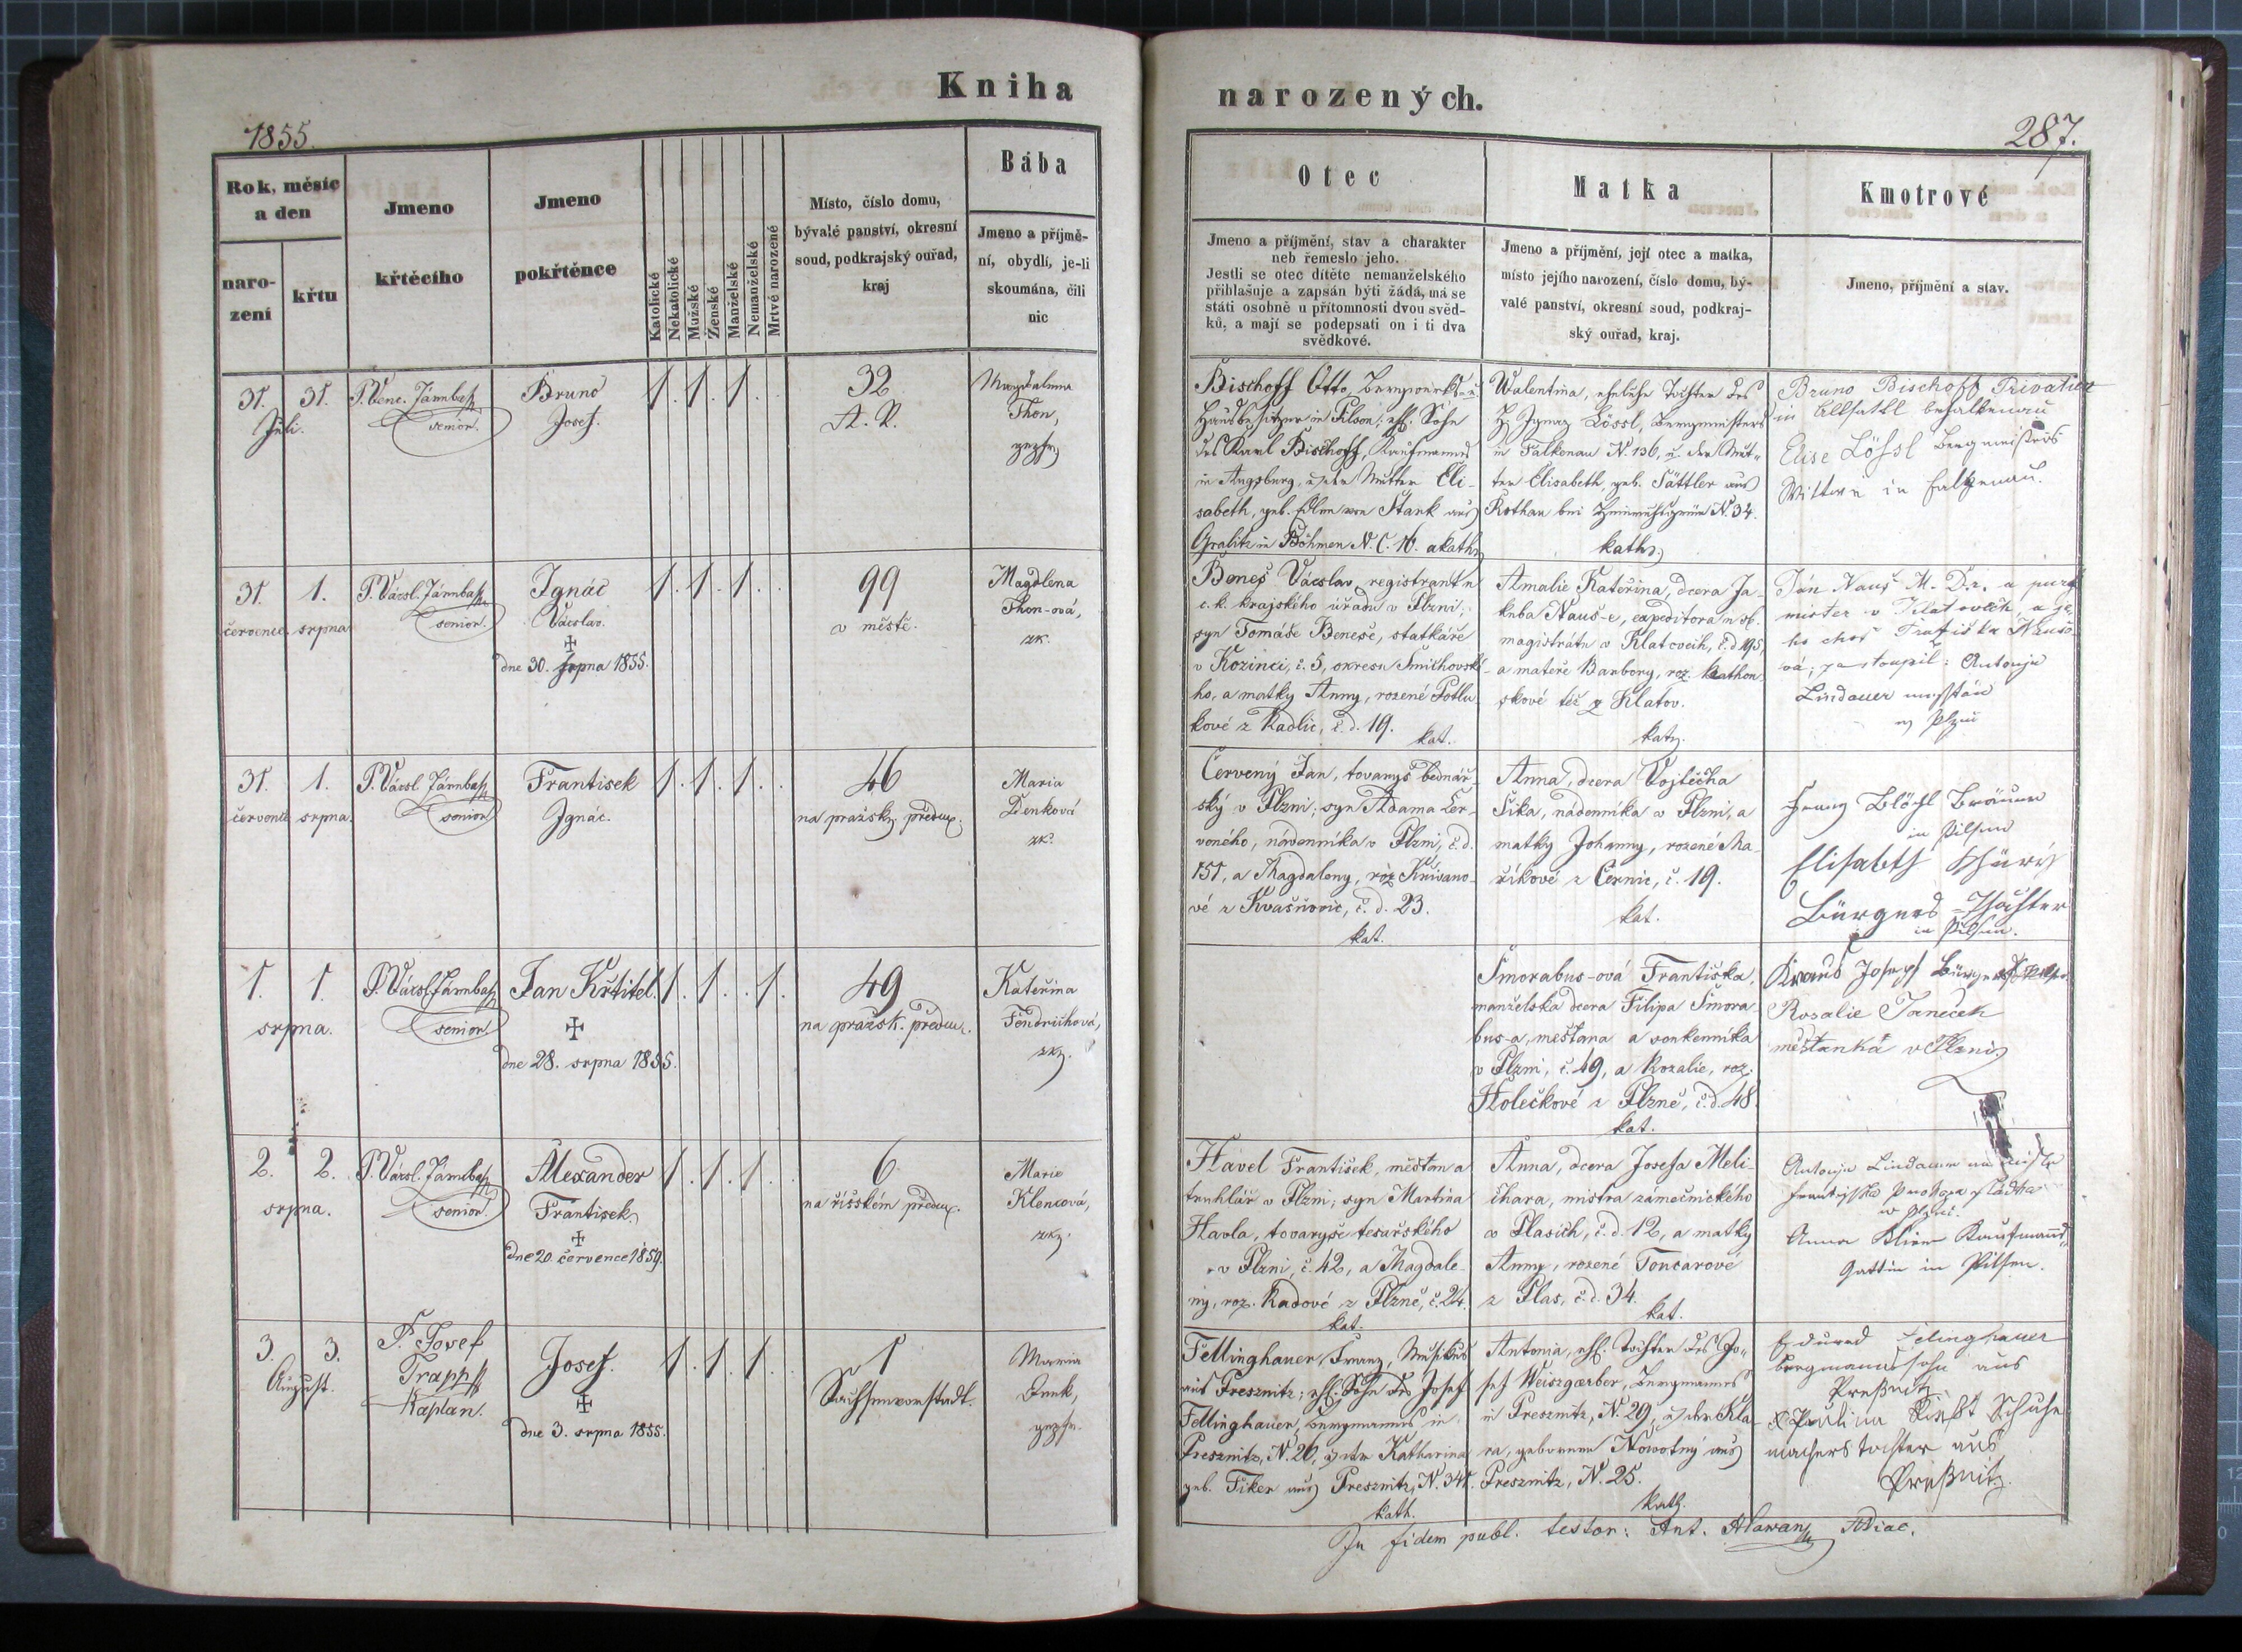 Kniha
narozených.
1855.
287.
Rok, měsíc
a den
naro-
zení
křtu
Jmeno
křtěcího
Jmeno
pokřtěnce
Katolické
Nekatolické
Mužské
Ženské
Manželské
Nemanželské
Mrtvě narozené
Místo, číslo domu,
bývalé panství, okresní
soud, podkrajský ouřad,
kraj
Bába
Jmeno a příjmě-
ní, obydlí, je-li
skoumána, čili
nic
Otec
Jmeno a příjmění, stav a charakter
neb řemeslo jeho.
Jestli se otec dítěte nemanželského
přihlašuje a zapsán býti žádá, má se
státi osobně u přítomnosti dvou svěd-
ků, a mají se podepsati on i ti dva
svědkové.
Matka
Jmeno a příjmění, její otec a matka,
místo jejího narození, číslo domu, bý-
valé panství, okresní soud, podkraj-
ský ouřad, kraj.
Kmotrové
Jmeno, příjmění a stav.
31. 31.
Juli.
P. Venc. Járnba
senior.
Bruno
Josef.
1. 1. 1.
32
Magdalena
Thon,
Bischoff Otto, Bergwerks- u.
Hausbesitzer in Pilsen; ehl. Sohn
des Karl Bischoff, Kaufmannes
in Augsburg, u. der Mutter Eli-
sabeth, geb. Edlen von Stark aus
Graslitz in Böhmen N.C. 16. akath.
Walentina, eheliche Tochter des
H. Ignaz Lössl, Bergmeisters
in Falkenau N. 136, u. der Mut-
ter Elisabeth, geb. Sättler aus
Rothau bei Heinrichsgrün N. 34.
kath.
Bruno Bischoff Privatier
in
Elise Lössl Bergmeisters
Wittwe in Falkenau.
31. 1.
července. srpna
P. Vácsl. Járnba
senior.
Ignác
Vácslav.
dne 30. srpna 1855.
1. 1. 1.
99
v městě.
Magdlena
Thon-ová,
zk.
Beneš Vácslav, registrant u
c. k. krajského úřadu v Plzni;
syn Tomáše Beneše, statkáře
v Kozinci, č. 5, okresu Smíchovské-
ho, a matky Anny, rozené Potlu-
kové z Radlic, č. d. 19.
kat.
Amalie Kateřina, dcera Ja-
kuba Nauš-e, expeditora u
magistrátu v Klatovech, č. d. 195,
a mateře Barbory, roz. Kathon-
skové též z Klatov.
kat.
Ján Nauš M. Dr. a purg
mister v Klatovech, a je-
ho choť Františka Naušo-
vá; zastoupil: Antonín
Lindauer
v Plzni
31. 1.
července srpna.
P. Vácsl. Járnba
senior
František
Ignác.
1. 1. 1.
46
na pražsk. předm.
Maria
Denková
zk.
Červený Jan, tovaryš bednář-
ský v Plzni; syn Adama Čer-
veného, nádenníka v Plzni, č. d.
151, a Magdaleny, roz. Křivano-
vé z Kvašňovic, č. d. 23.
kat.
Anna, dcera Vojtěcha
Šika, nádenníka v Plzni, a
matky Johanny, rozené Ma-
říkové z Černic, č. 19.
kat.
Franz Blöchl Bräuer
in Pilsen
Elisabeth
Bürgers Tochter
in Pilsen.
1. 1.
srpna.
P. Vácsl. Járnba
senior
Jan Křtitel.
dne 28. srpna 1855.
1. 1. 1.
49
na pražsk. předm.
Kateřina
Fendrichová,
zk.
Šmorabus-ová Františka,
manželská dcera Filipa Šmora-
bus-a, měštana a soukenníka
v Plzni, č. 49, a Rozalie, roz.
Holečkové z Plzně, č. d. 48.
kat.
Kraus Josef
Rosalie Janeček
měštanka v Plzni
2. 2.
srpna.
P. Vácsl. Járnba
senior.
Alexander
František
dne 20. července 1859.
1. 1. 1.
6
na říšském předm.
Marie
Klencová,
zk.
Havel František, měštan a
truhlář v Plzni; syn Martina
Havla, tovaryše tesařského
v Plzni, č. 42, a Magdale-
ny, roz. Radové z Plzně, č. 24.
kat.
Anna, dcera Josefa Meli-
chara, mistra zámečnického
v Plasích, č. d. 12, a matky
Anny, rozené Toncarové
z Plas, č. d. 34.
kat.
Antonín Lindauer
v Plzni.
Anna Klier Kaufmanns
Gattin in Pilsen.
3. 3.
August.
P. Josef
Trapp
Kaplan.
Josef.
dne 3. srpna 1855.
1. 1. 1.
1
Sachsenvorstadt.
Maria
Denk,
Fellinghauer Franz, Musikus
aus Presznitz; ehl. Sohn des Josef
Fellinghauer, Bergmannes in
Presznitz, N. 26, u. der Katharina
geb. Fiker aus Presznitz, N. 341.
kath.
Antonia, ehl. Tochter des Jo-
sef Weiszgerber, Bergmannes
in Presznitz, N. 29, u. der Kla-
ra, geborenen Nowotný aus
Presznitz, N. 25.
kath.
Eduard Felinghauer
Bergmannssohn aus
Preßnitz.
Paulina Schuh
machers tochter aus
Preßnitz.
In fidem publ. testor: Ant. Hlawan